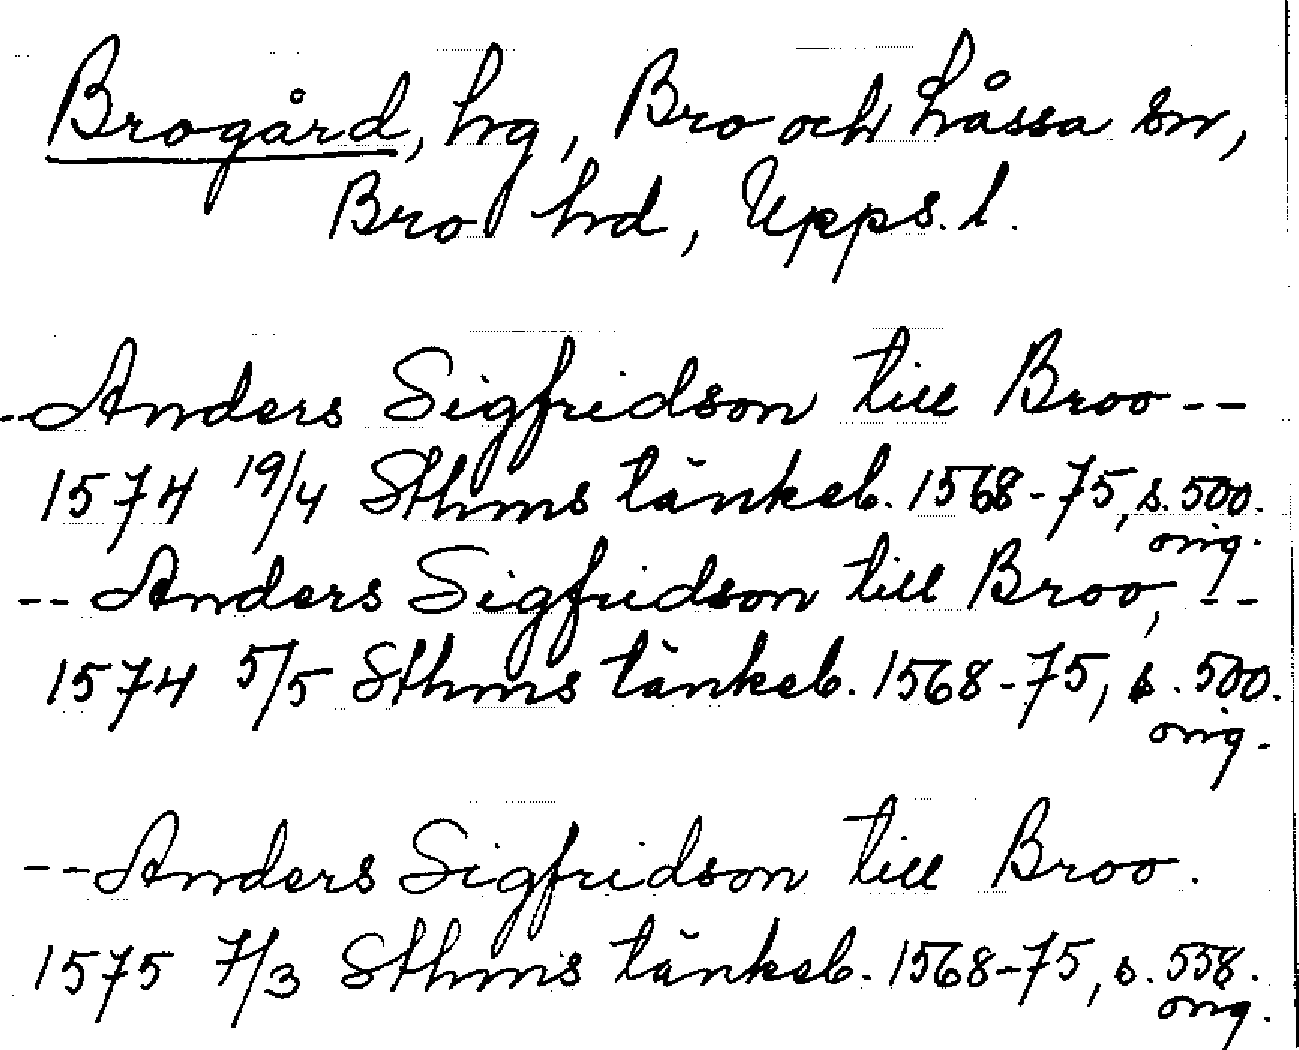 Brogård, hg, Bro och Låssa sn,
Bro hd, Upps. l.
--Anders Sigfridson till Broo--
1574 19/4 Sthms tänkeb. 1568-75, s. 500.
orig.
-- Anders Sigfridson till Broo, --
1574 5/5 Sthms tänkeb. 1568-75, s. 500.
orig.
--Anders Sigfridson till Broo.
1575 7/3 Sthms tänkeb. 1568-75, s. 558.
orig.